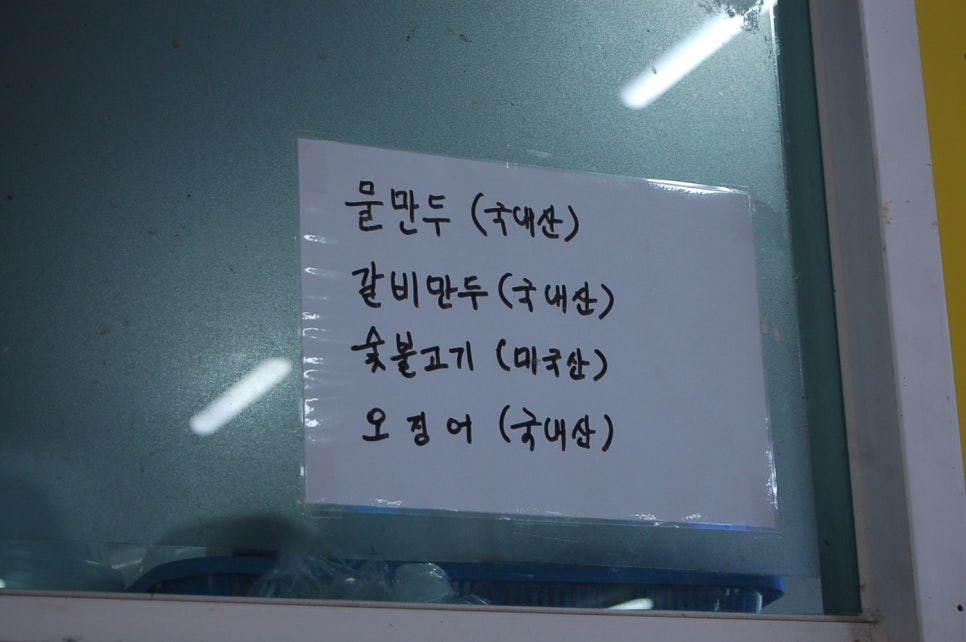 물만두 (국내산)
갈비만두 (국내산)
숯불고기 (미국산)
오징어 (국내산)